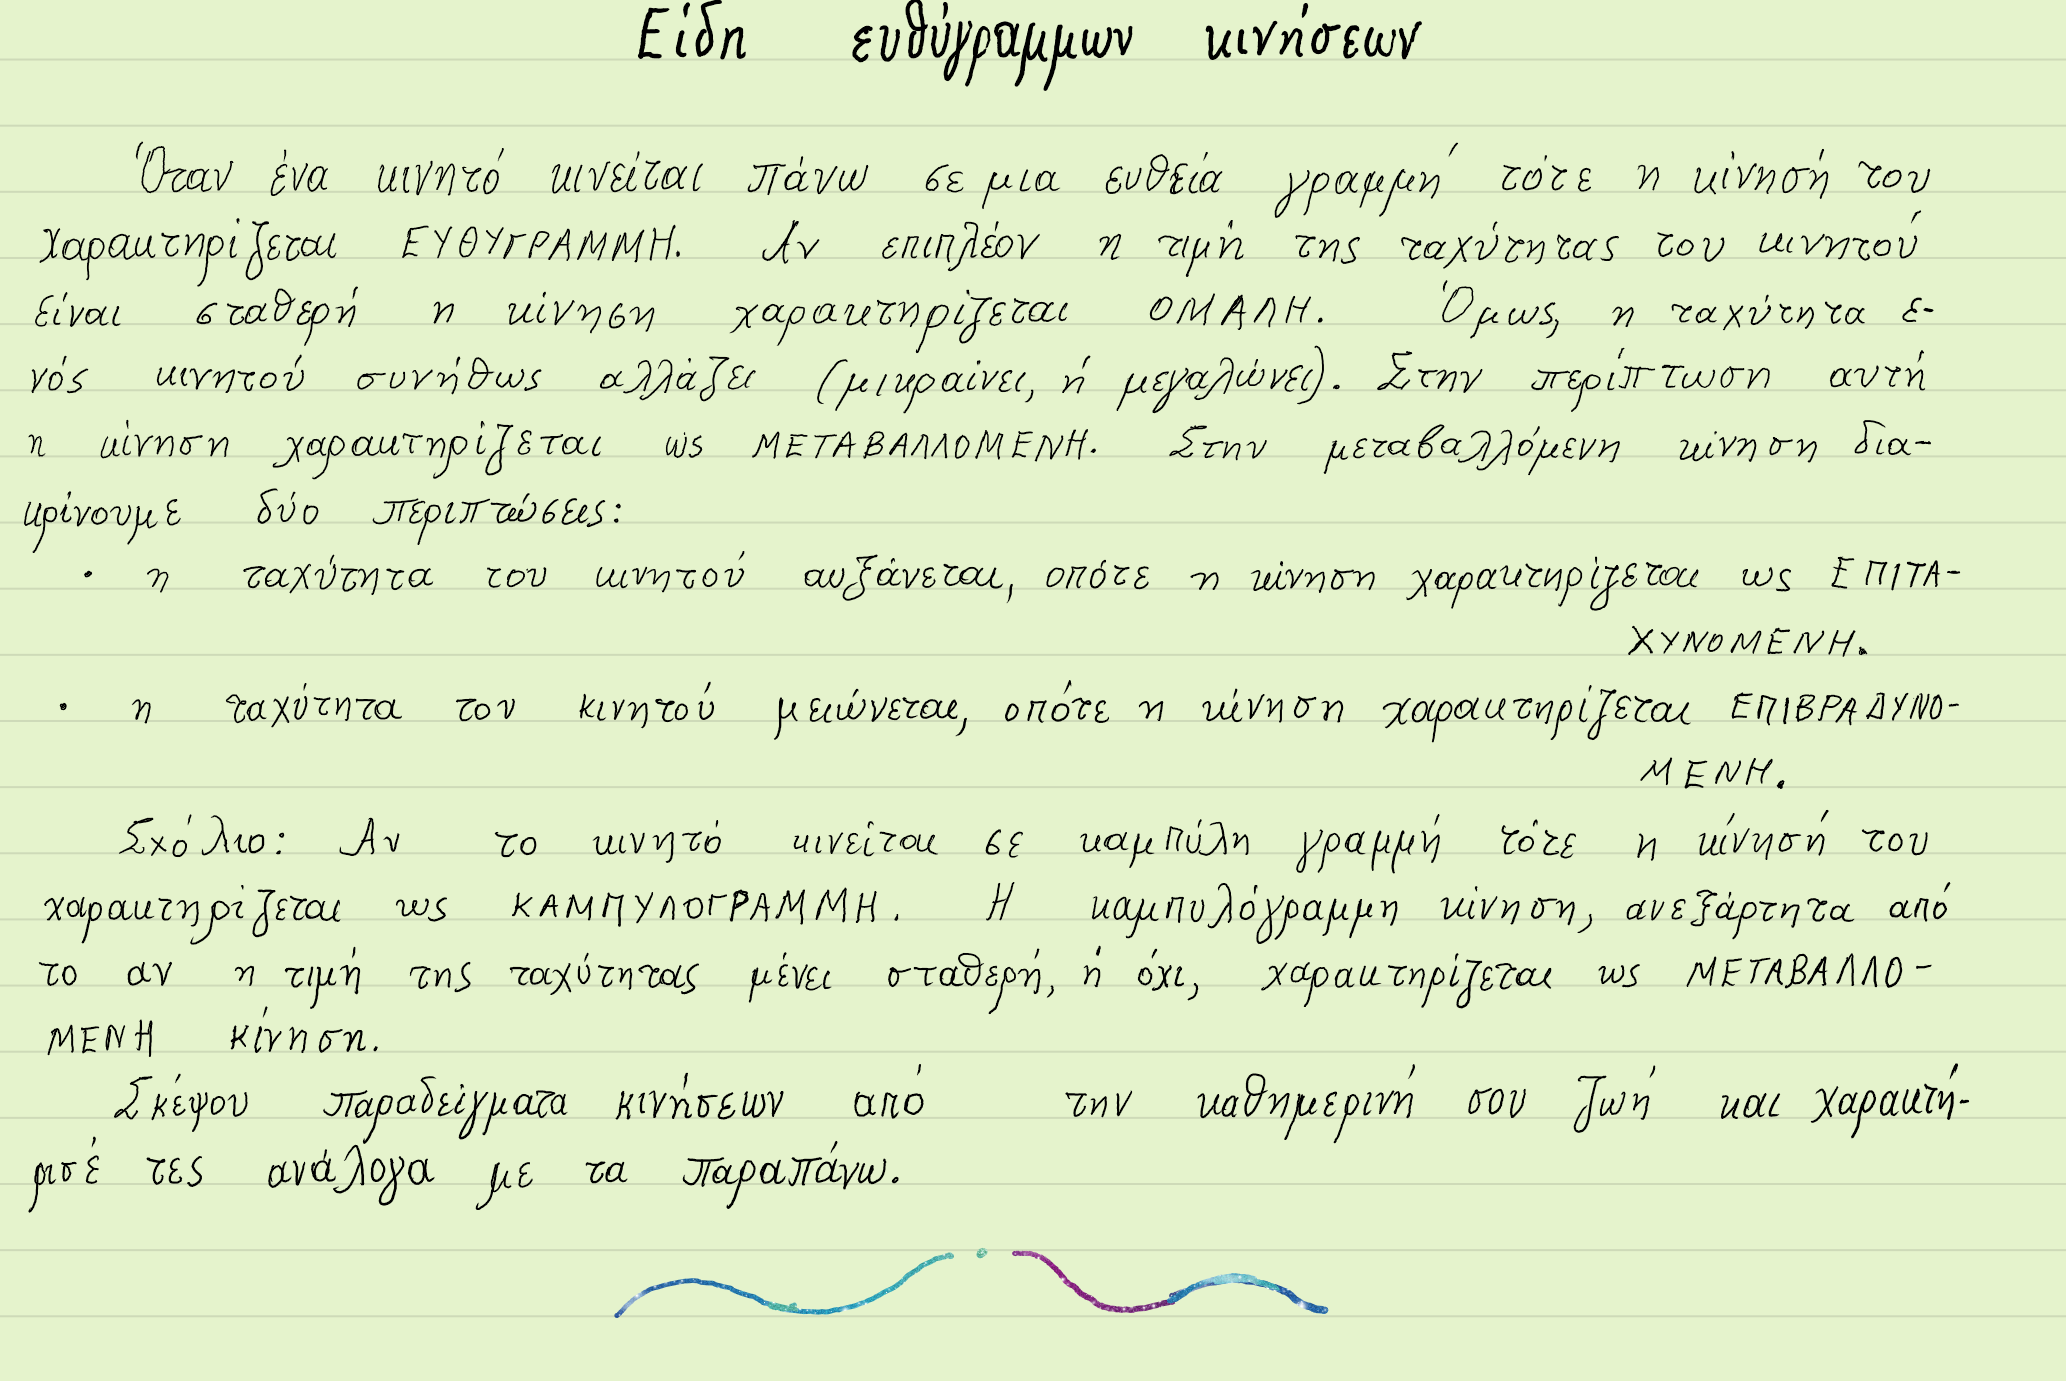 Είδη ευθύγραμμων κινήσεων
Όταν ένα κινητό κινείται πάνω σε μια ευθεία γραμμή τότε η κίνησή του
χαρακτηρίζεται ΕΥΘΥΓΡΑΜΜΗ. Αν επιπλέον η τιμή της ταχύτητας του κινητού
είναι σταθερή η κίνηση χαρακτηρίζεται ΟΜΑΛΗ. Όμως, η ταχύτητα ε-
νός κινητού συνήθως αλλάζει (μικραίνει, ή μεγαλώνει). Στην περίπτωση αυτή
η κίνηση χαρακτηρίζεται ως ΜΕΤΑΒΑΛΛΟΜΕΝΗ. Στην μεταβαλλόμενη κίνηση δια-
κρίνουμε δύο περιπτώσεις:
• η ταχύτητα του κινητού αυξάνεται, οπότε η κίνηση χαρακτηρίζεται ως ΕΠΙΤΑ-
ΧΥΝΟΜΕΝΗ.
• η ταχύτητα του κινητού μειώνεται, οπότε η κίνηση χαρακτηρίζεται ΕΠΙΒΡΑΔΥΝΟ-
ΜΕΝΗ.
Σχόλιο: Αν το κινητό κινείται σε καμπύλη γραμμή τότε η κίνησή του
χαρακτηρίζεται ως ΚΑΜΠΥΛΟΓΡΑΜΜΗ. Η καμπυλόγραμμη κίνηση, ανεξάρτητα από
το αν η τιμή της ταχύτητας μένει σταθερή, ή όχι, χαρακτηρίζεται ως ΜΕΤΑΒΑΛΛΟ-
ΜΕΝΗ κίνηση.
Σκέψου παραδείγματα κινήσεων από την καθημερινή σου ζωή και χαρακτή-
ρισέ τες ανάλογα με τα παραπάνω.